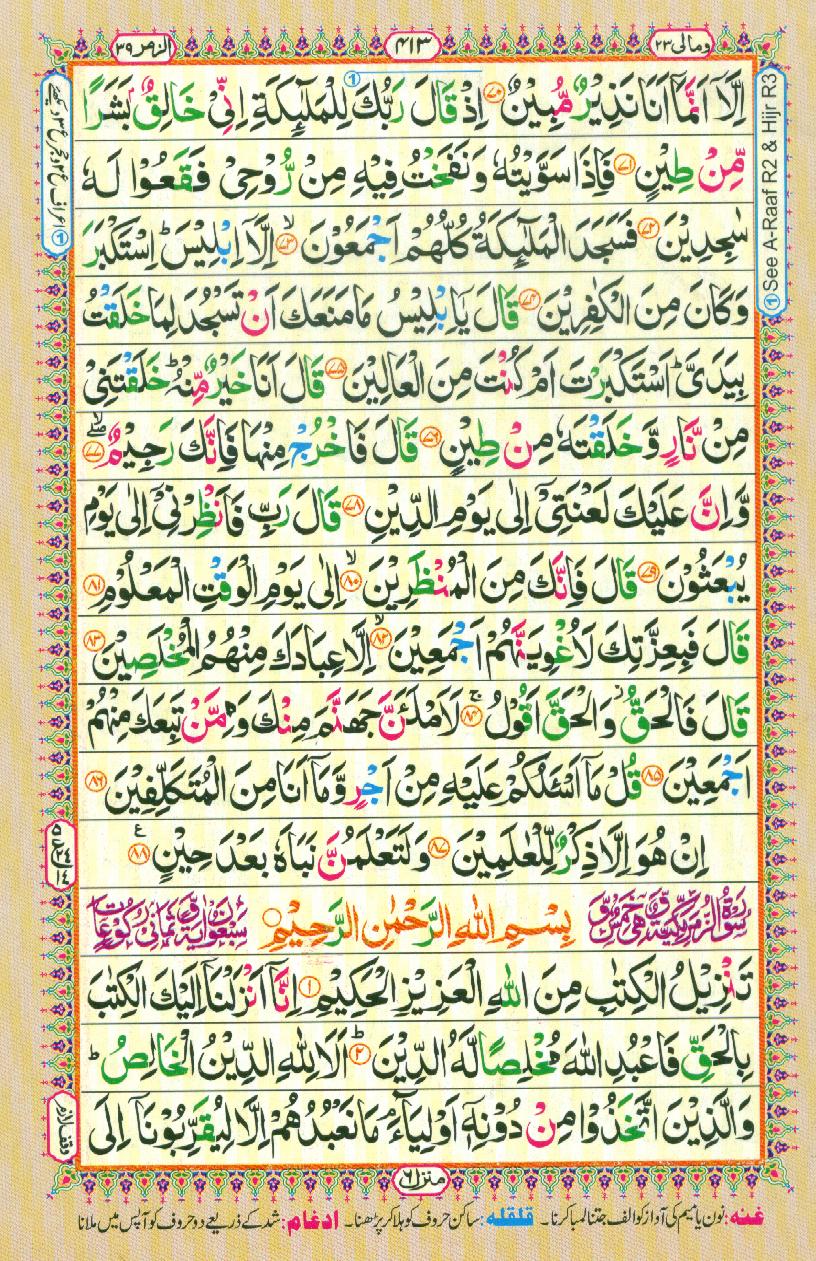 ومالی ٢٣
٤١٣
الزمر ٣٩
اِلَّاۤ اَنَّمَاۤ اَنَا نَذِیْرٌ مُّبِیْنٌ ﴿٧٠﴾ اِذْ قَالَ رَبُّكَ لِلْمَلٰٓىِٕكَةِ اِنِّیْ خَالِقٌۢ بَشَرًا
مِّنْ طِیْنٍ ﴿٧١﴾ فَاِذَا سَوَّیْتُهٗ وَنَفَخْتُ فِیْهِ مِنْ رُّوْحِیْ فَقَعُوْا لَهٗ
سٰجِدِیْنَ ﴿٧٢﴾ فَسَجَدَ الْمَلٰٓىِٕكَةُ كُلُّهُمْ اَجْمَعُوْنَ ﴿٧٣﴾ۙ اِلَّاۤ اِبْلِیْسَ ؕ اِسْتَكْبَرَ
وَكَانَ مِنَ الْكٰفِرِیْنَ ﴿٧٤﴾ قَالَ یٰۤاِبْلِیْسُ مَا مَنَعَكَ اَنْ تَسْجُدَ لِمَا خَلَقْتُ
بِیَدَیَّ ؕ اَسْتَكْبَرْتَ اَمْ كُنْتَ مِنَ الْعَالِیْنَ ﴿٧٥﴾ قَالَ اَنَا خَیْرٌ مِّنْهُ ؕ خَلَقْتَنِیْ
مِنْ نَّارٍ وَّخَلَقْتَهٗ مِنْ طِیْنٍ ﴿٧٦﴾ قَالَ فَاخْرُجْ مِنْهَا فَاِنَّكَ رَجِیْمٌ ﴿٧٧﴾ۖۙ
وَّاِنَّ عَلَیْكَ لَعْنَتِیْۤ اِلٰی یَوْمِ الدِّیْنِ ﴿٧٨﴾ قَالَ رَبِّ فَاَنْظِرْنِیْۤ اِلٰی یَوْمِ
یُبْعَثُوْنَ ﴿٧٩﴾ قَالَ فَاِنَّكَ مِنَ الْمُنْظَرِیْنَ ﴿٨٠﴾ۙ اِلٰی یَوْمِ الْوَقْتِ الْمَعْلُوْمِ ﴿٨١﴾
قَالَ فَبِعِزَّتِكَ لَاُغْوِیَنَّهُمْ اَجْمَعِیْنَ ﴿٨٢﴾ۙ اِلَّا عِبَادَكَ مِنْهُمُ الْمُخْلَصِیْنَ ﴿٨٣﴾
قَالَ فَالْحَقُّ ؗ وَالْحَقَّ اَقُوْلُ ﴿٨٤﴾ۚ لَاَمْلَـَٔنَّ جَهَنَّمَ مِنْكَ وَمِمَّنْ تَبِعَكَ مِنْهُمْ
اَجْمَعِیْنَ ﴿٨٥﴾ قُلْ مَاۤ اَسْـَٔلُكُمْ عَلَیْهِ مِنْ اَجْرٍ وَّمَاۤ اَنَا مِنَ الْمُتَكَلِّفِیْنَ ﴿٨٦﴾
اِنْ هُوَ اِلَّا ذِكْرٌ لِّلْعٰلَمِیْنَ ﴿٨٧﴾ وَلَتَعْلَمُنَّ نَبَاَهٗ بَعْدَ حِیْنٍ ﴿٨٨﴾ ع
سورة الزمر مكية وهی خمس وسبعون اية وثمانی ركوعات
بِسْمِ اللّٰهِ الرَّحْمٰنِ الرَّحِیْمِ
تَنْزِیْلُ الْكِتٰبِ مِنَ اللّٰهِ الْعَزِیْزِ الْحَكِیْمِ ﴿١﴾ اِنَّاۤ اَنْزَلْنَاۤ اِلَیْكَ الْكِتٰبَ
بِالْحَقِّ فَاعْبُدِ اللّٰهَ مُخْلِصًا لَّهُ الدِّیْنَ ﴿٢﴾ؕ اَلَا لِلّٰهِ الدِّیْنُ الْخَالِصُ ؕ
وَالَّذِیْنَ اتَّخَذُوْا مِنْ دُوْنِهٖۤ اَوْلِیَآءَ ۘ مَا نَعْبُدُهُمْ اِلَّا لِیُقَرِّبُوْنَاۤ اِلَی
① See A-Raaf R2 & Hijr R3
وقف لازم
منزل ٦
غنه: نون یا میم کی آواز کو الف جتنا لمبا کرنا۔ قلقله: ساکن حروف کو ہلا کر پڑھنا۔ ادغام: شد کے ذریعے دو حروف کو آپس میں ملانا